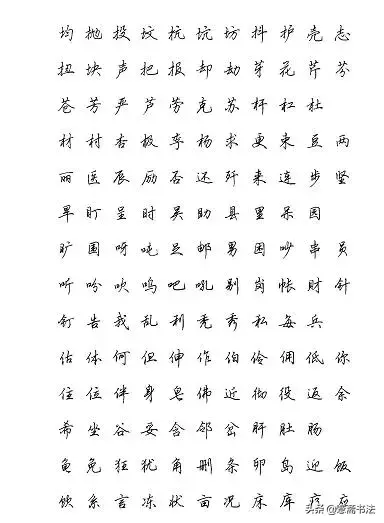 均 抛 投 坟 杭 坑 坊 抖 护 壳 志
扭 块 声 把 报 却 劫 芽 花 芹 芬
苍 芳 严 芦 劳 克 苏 杆 杠 杜
材 村 杏 极 李 杨 求 更 束 豆 两
丽 医 辰 励 否 还 歼 来 连 步 坚
旱 盯 呈 时 吴 助 县 里 呆 园
旷 围 呀 吨 足 邮 男 困 吵 串 员
听 吩 吹 呜 吧 吼 别 岗 帐 财 针
钉 告 我 乱 利 秃 秀 私 每 兵
估 体 何 但 伸 作 伯 伶 佣 低 你
住 位 伴 身 皂 佛 近 彻 役 返 余
希 坐 谷 妥 含 邻 岔 肝 肚 肠
龟 免 狂 犹 角 删 条 卵 岛 迎 饭
饮 系 言 冻 状 亩 况 床 库 疗 应
头条 书法